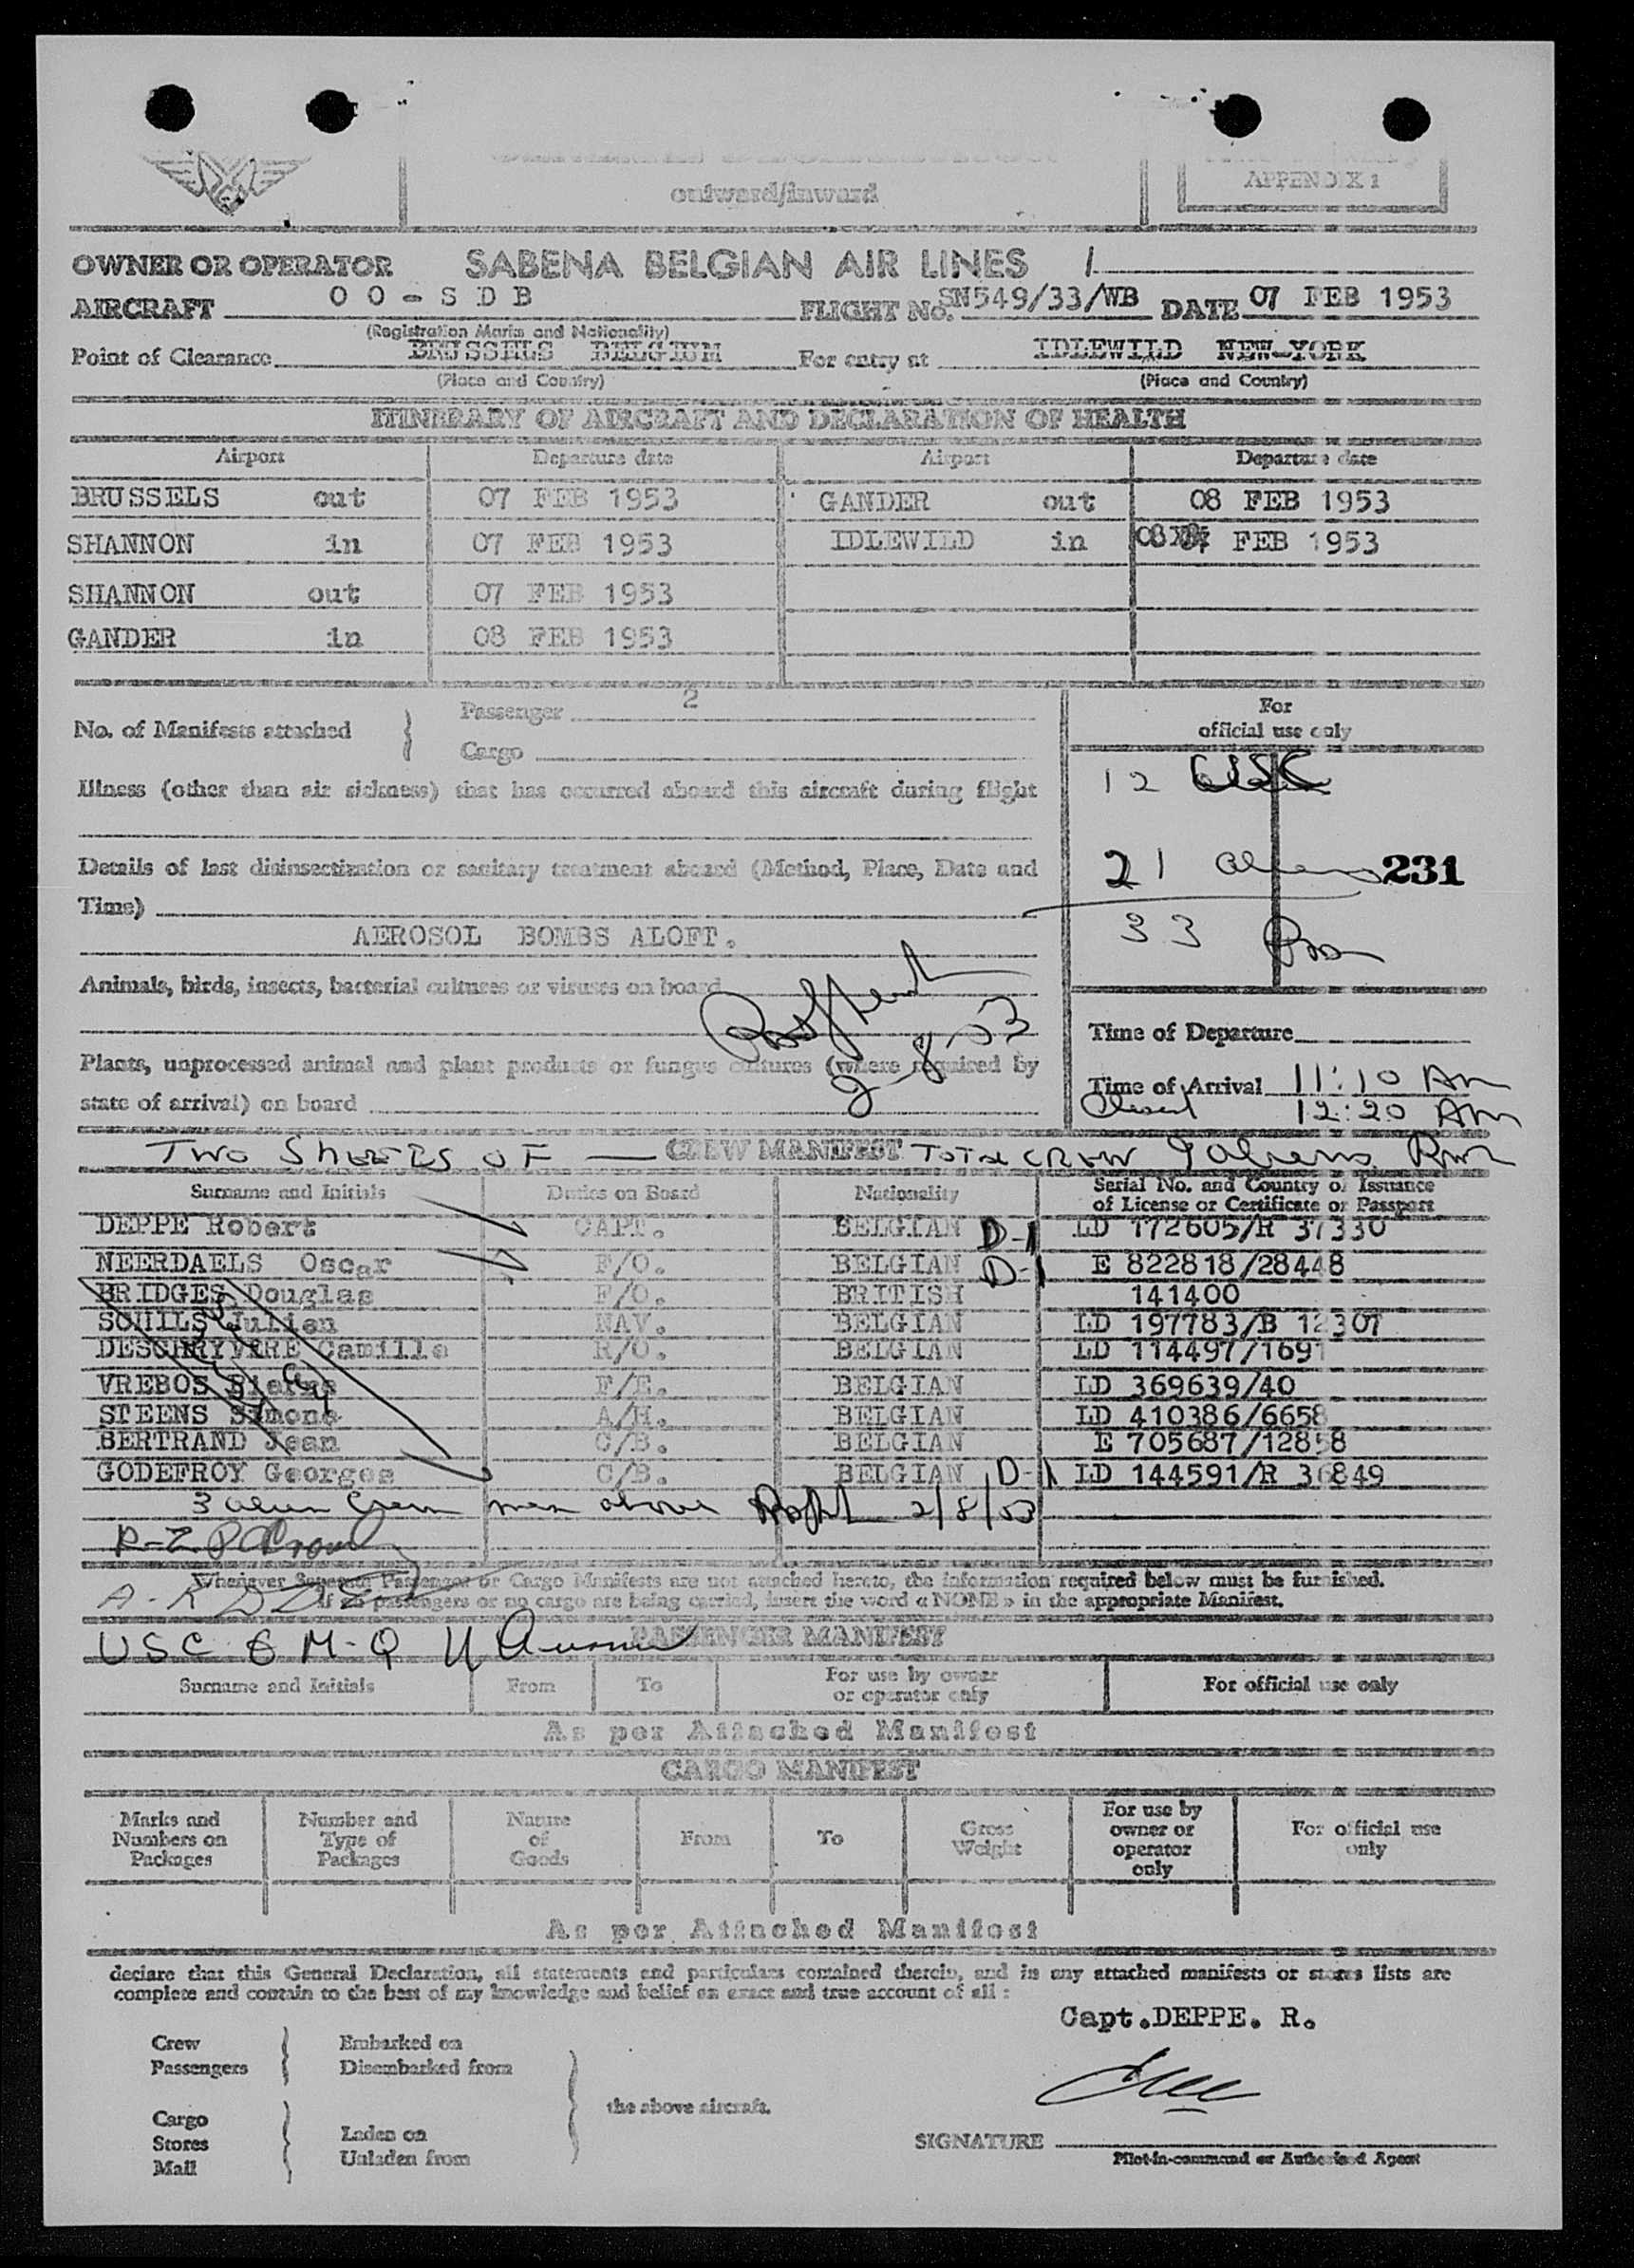 outward/inward
APPENDIX 1
OWNER OR OPERATOR SABENA BELGIAN AIR LINES 1
AIRCRAFT OO-SDB FLIGHT No. SN549/33/WB DATE 07 FEB 1953
(Registration Marks and Nationality)
Point of Clearance BRUSSELS BELGIUM For entry at IDLEWILD NEW-YORK
(Place and Country) (Place and Country)
ITINERARY OF AIRCRAFT AND DECLARATION OF HEALTH
Airport Departure date Airport Departure date
BRUSSELS out 07 FEB 1953 GANDER out 08 FEB 1953
SHANNON in 07 FEB 1953 IDLEWILD in 08 FEB 1953
SHANNON out 07 FEB 1953
GANDER in 08 FEB 1953
No. of Manifests attached } Passenger 2
Cargo
For
official use only
Illness (other than air sickness) that has occurred aboard this aircraft during flight
12 USC
Details of last disinsectization or sanitary treatment aboard (Method, Place, Date and
Time)
21 aliens 231
33
AEROSOL BOMBS ALOFT.
Animals, birds, insects, bacterial cultures or viruses on board
2-8-53
Plants, unprocessed animal and plant products or fungus cultures (where required by
state of arrival) on board
Time of Departure
Time of Arrival 11:10 Am
12:20 Am
TWO SHEETS OF — CREW MANIFEST TOTAL CREW 9 aliens
Surname and Initials Duties on Board Nationality Serial No. and Country of Issuance
of License or Certificate or Passport
DEPPE Robert CAPT. BELGIAN D-1 LD 172605/R 37330
NEERDAELS Oscar F/O. BELGIAN D-1 E 822818/28448
BRIDGES Douglas F/O. BRITISH 141400
SOUILS Julien NAV. BELGIAN LD 197783/B 12307
DESCHRYVERE Camille R/O. BELGIAN LD 114497/1691
VREBOS Pierre F/E. BELGIAN LD 369639/40
STEENS Simone A/H. BELGIAN LD 410386/6658
BERTRAND Jean C/B. BELGIAN E 705687/12858
GODEFROY Georges C/B. BELGIAN D-1 LD 144591/R 36849
3 alien crew men above 2/8/53
Whenever Separate Passenger or Cargo Manifests are not attached hereto, the information required below must be furnished.
If no passengers or no cargo are being carried, insert the word « NONE » in the appropriate Manifest.
USC & M-Q
PASSENGER MANIFEST
Surname and Initials From To For use by owner
or operator only For official use only
As per Attached Manifest
CARGO MANIFEST
Marks and
Numbers on
Packages
Number and
Type of
Packages
Nature
of
Goods
From
To
Gross
Weight
For use by
owner or
operator
only
For official use
only
As per Attached Manifest
declare that this General Declaration, all statements and particulars contained therein, and in any attached manifests or stores lists are
complete and contain to the best of my knowledge and belief an exact and true account of all :
Capt.DEPPE. R.
Crew
Passengers } Embarked on
Disembarked from
the above aircraft.
Cargo
Stores
Mail } Laden on
Unladen from
SIGNATURE
Pilot-in-command or Authorised Agent